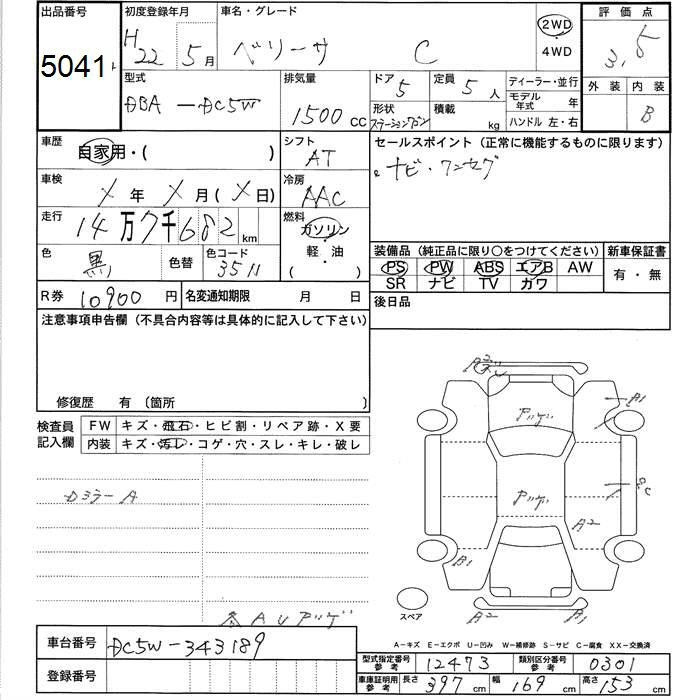 出品番号 初度登録年月 車名・グレード 2WD 評価点
5041 H22 5月 ベリーサ C 4WD 3.5
型式 排気量 ドア 5 定員 5人 ディーラー・並行 外装 内装
DBA-DC5W 1500cc 形状 ステーションワゴン 積載 kg モデル年式 年 B
ハンドル 左・右
車歴 自家用・( ) シフト AT セールスポイント (正常に機能するものに限ります)
ナビ・ワンセグ
車検 X年 X月(X日) 冷房 AAC
走行 14万7千682km 燃料 ガソリン
軽・油
( )
色 黒 色替 色コード 3511
装備品 (純正品に限り○をつけてください) 新車保証書
PS PW ABS エアB AW 有・無
SR ナビ TV カワ
R券 10900円 名変通知期限 月 日 後日品
注意事項申告欄 (不具合内容等は具体的に記入して下さい)
修復歴 有 (箇所 )
検査員記入欄 FW キズ・飛石・ヒビ割・リペア跡・X要
内装 キズ・汚レ・コゲ・穴・スレ・キレ・破レ
A1
アツゲ
アツゲ
A2
B1
DミラーA
スペア
A2 B1
AUアツゲ
車台番号 DC5W-343189
登録番号
A-キズ E-エクボ U-凹み W-補修跡 S-サビ C-腐食 XX-交換済
型式指定番号 参考 12473 類別区分番号 参考 0301
車庫証明用 参考 長さ 397cm 幅 169cm 高さ 153cm